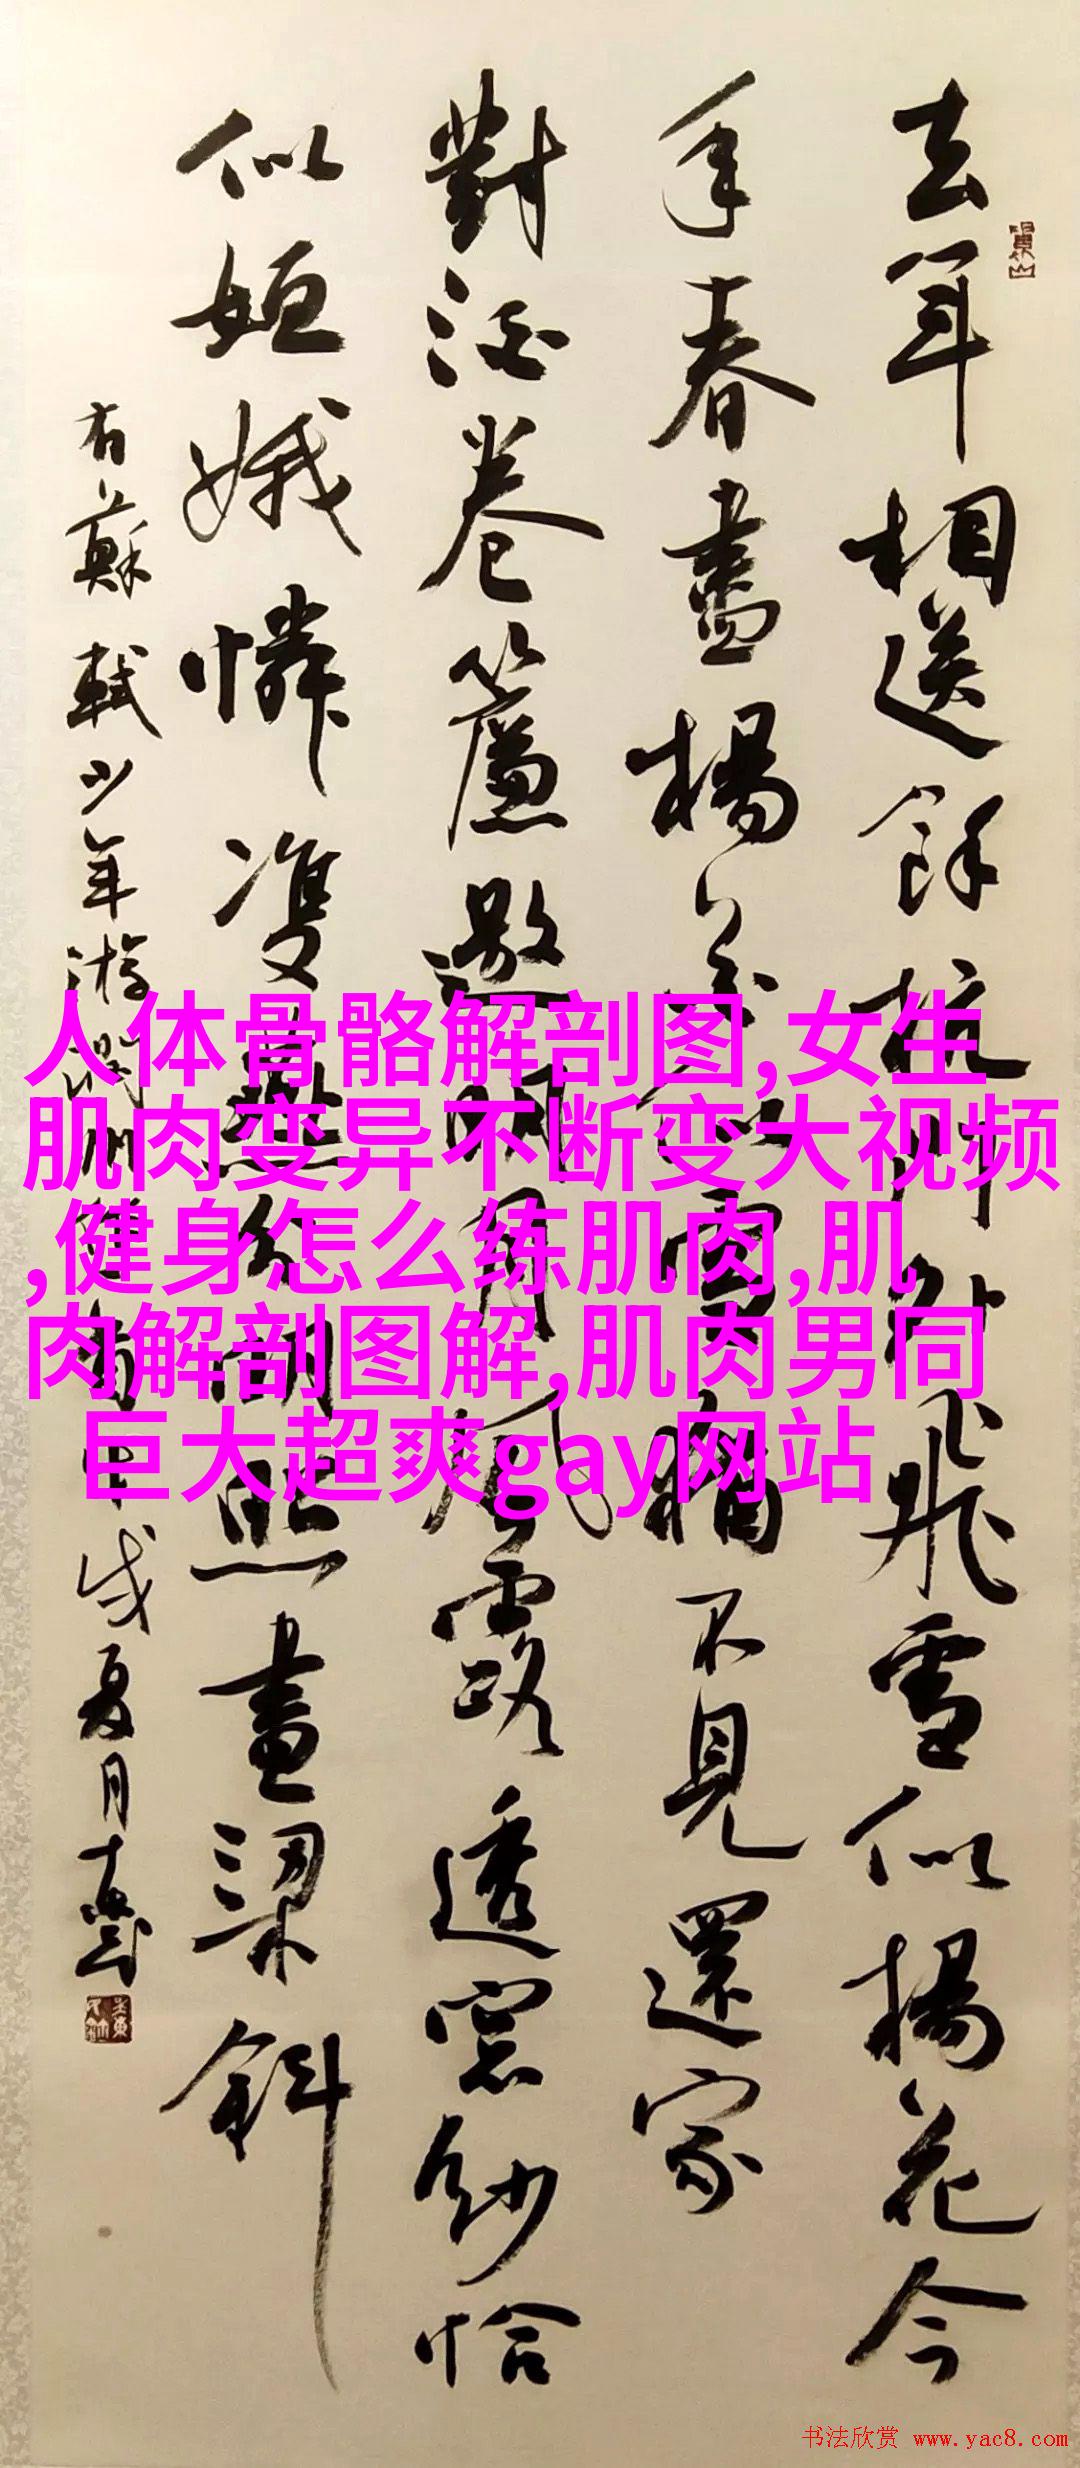 去年相送餘杭門外飛雪似楊花今
年春盡楊花似雪猶不見還家
對酒卷簾邀明月風露透窓紗恰
似姮娥憐雙燕分明照畫梁斜
右蘇軾少年游潤州戌夏月
人体骨骼解剖图,女生
肌肉变异不断变大视频
,健身怎么练肌肉,肌
肉解剖图解,肌肉男同
巨大超爽gay网站
书法欣赏 www.yac8.com